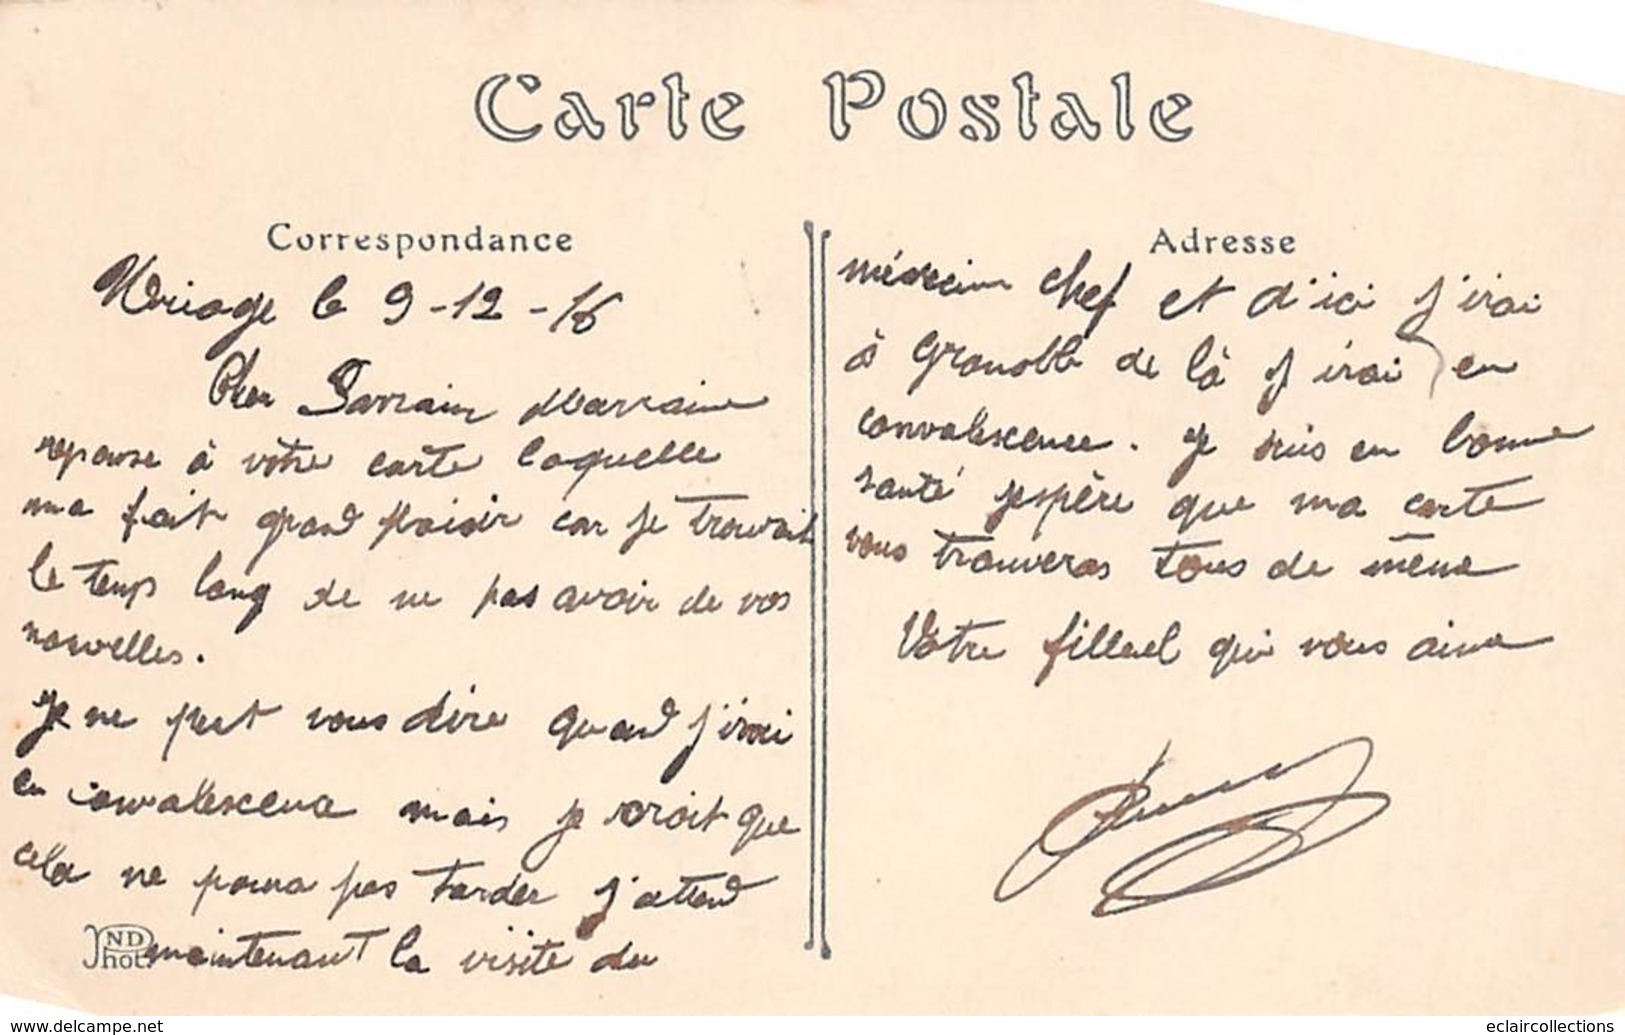 Carte Postale
Correspondance
Uriage le 9-12-16
Cher Parrain Marraine
reponse à votre carte laquelle
ma fait grand plaisir car je trouvait
le temps long de ne pas avoir de vos
nouvelles.
Je ne peut vous dire quand j'irai
en convalescence mais je croit que
cela ne poura pas tarder j'attend
maintenant la visite du
ND Phot.
Adresse
médecin chef et d'ici j'irai
à Grenoble de là j'irai en
convalescence. Je suis en bonne
santé jespère que ma carte
vous trouveras tous de même
Votre filleul qui vous aime
www.delcampe.net
eclaircollections